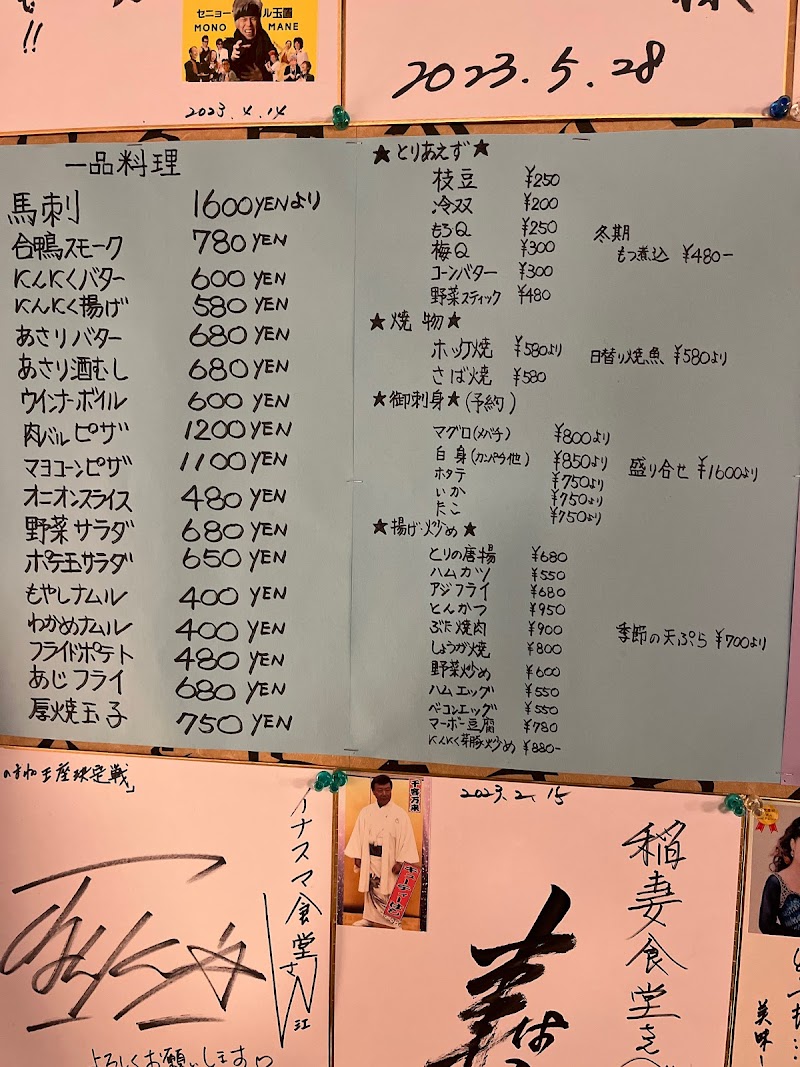 セニョール玉置
MONO MANE
2023.4.14
2023.5.28
一品料理
馬刺 1600YENより
合鴨スモーク 780YEN
にんにくバター 600YEN
にんにく揚げ 580YEN
あさりバター 680YEN
あさり酒むし 680YEN
ウインナーボイル 600YEN
肉バルピザ 1200YEN
マヨコーンピザ 1100YEN
オニオンスライス 480YEN
野菜サラダ 680YEN
ポテ玉サラダ 650YEN
もやしナムル 400YEN
わかめナムル 400YEN
フライドポテト 480YEN
あじフライ 680YEN
厚焼玉子 750YEN
★とりあえず★
枝豆 ¥250
冷双 ¥200
もろQ ¥250
梅Q ¥300
コーンバター ¥300
野菜スティック ¥480
冬期
もつ煮込 ¥480-
★焼物★
ホッケ焼 ¥580より
さば焼 ¥580
日替り焼魚 ¥580より
★御刺身★(予約)
マグロ(メバチ) ¥800より
白身(カンパチ他) ¥850より
ホタテ ¥750より
いか ¥750より
たこ ¥750より
盛り合せ ¥1600より
★揚げ・炒め★
とりの唐揚 ¥680
ハムカツ ¥550
アジフライ ¥680
とんかつ ¥950
ぶた焼肉 ¥900
しょうが焼 ¥800
野菜炒め ¥600
ハムエッグ ¥550
ベーコンエッグ ¥550
マーボー豆腐 ¥780
にんにく芽豚炒め ¥880-
季節の天ぷら ¥700より
イナズマ食堂さん江
よろしくお願いします
千客万来
2023.2.15
稲妻食堂さん
美味し